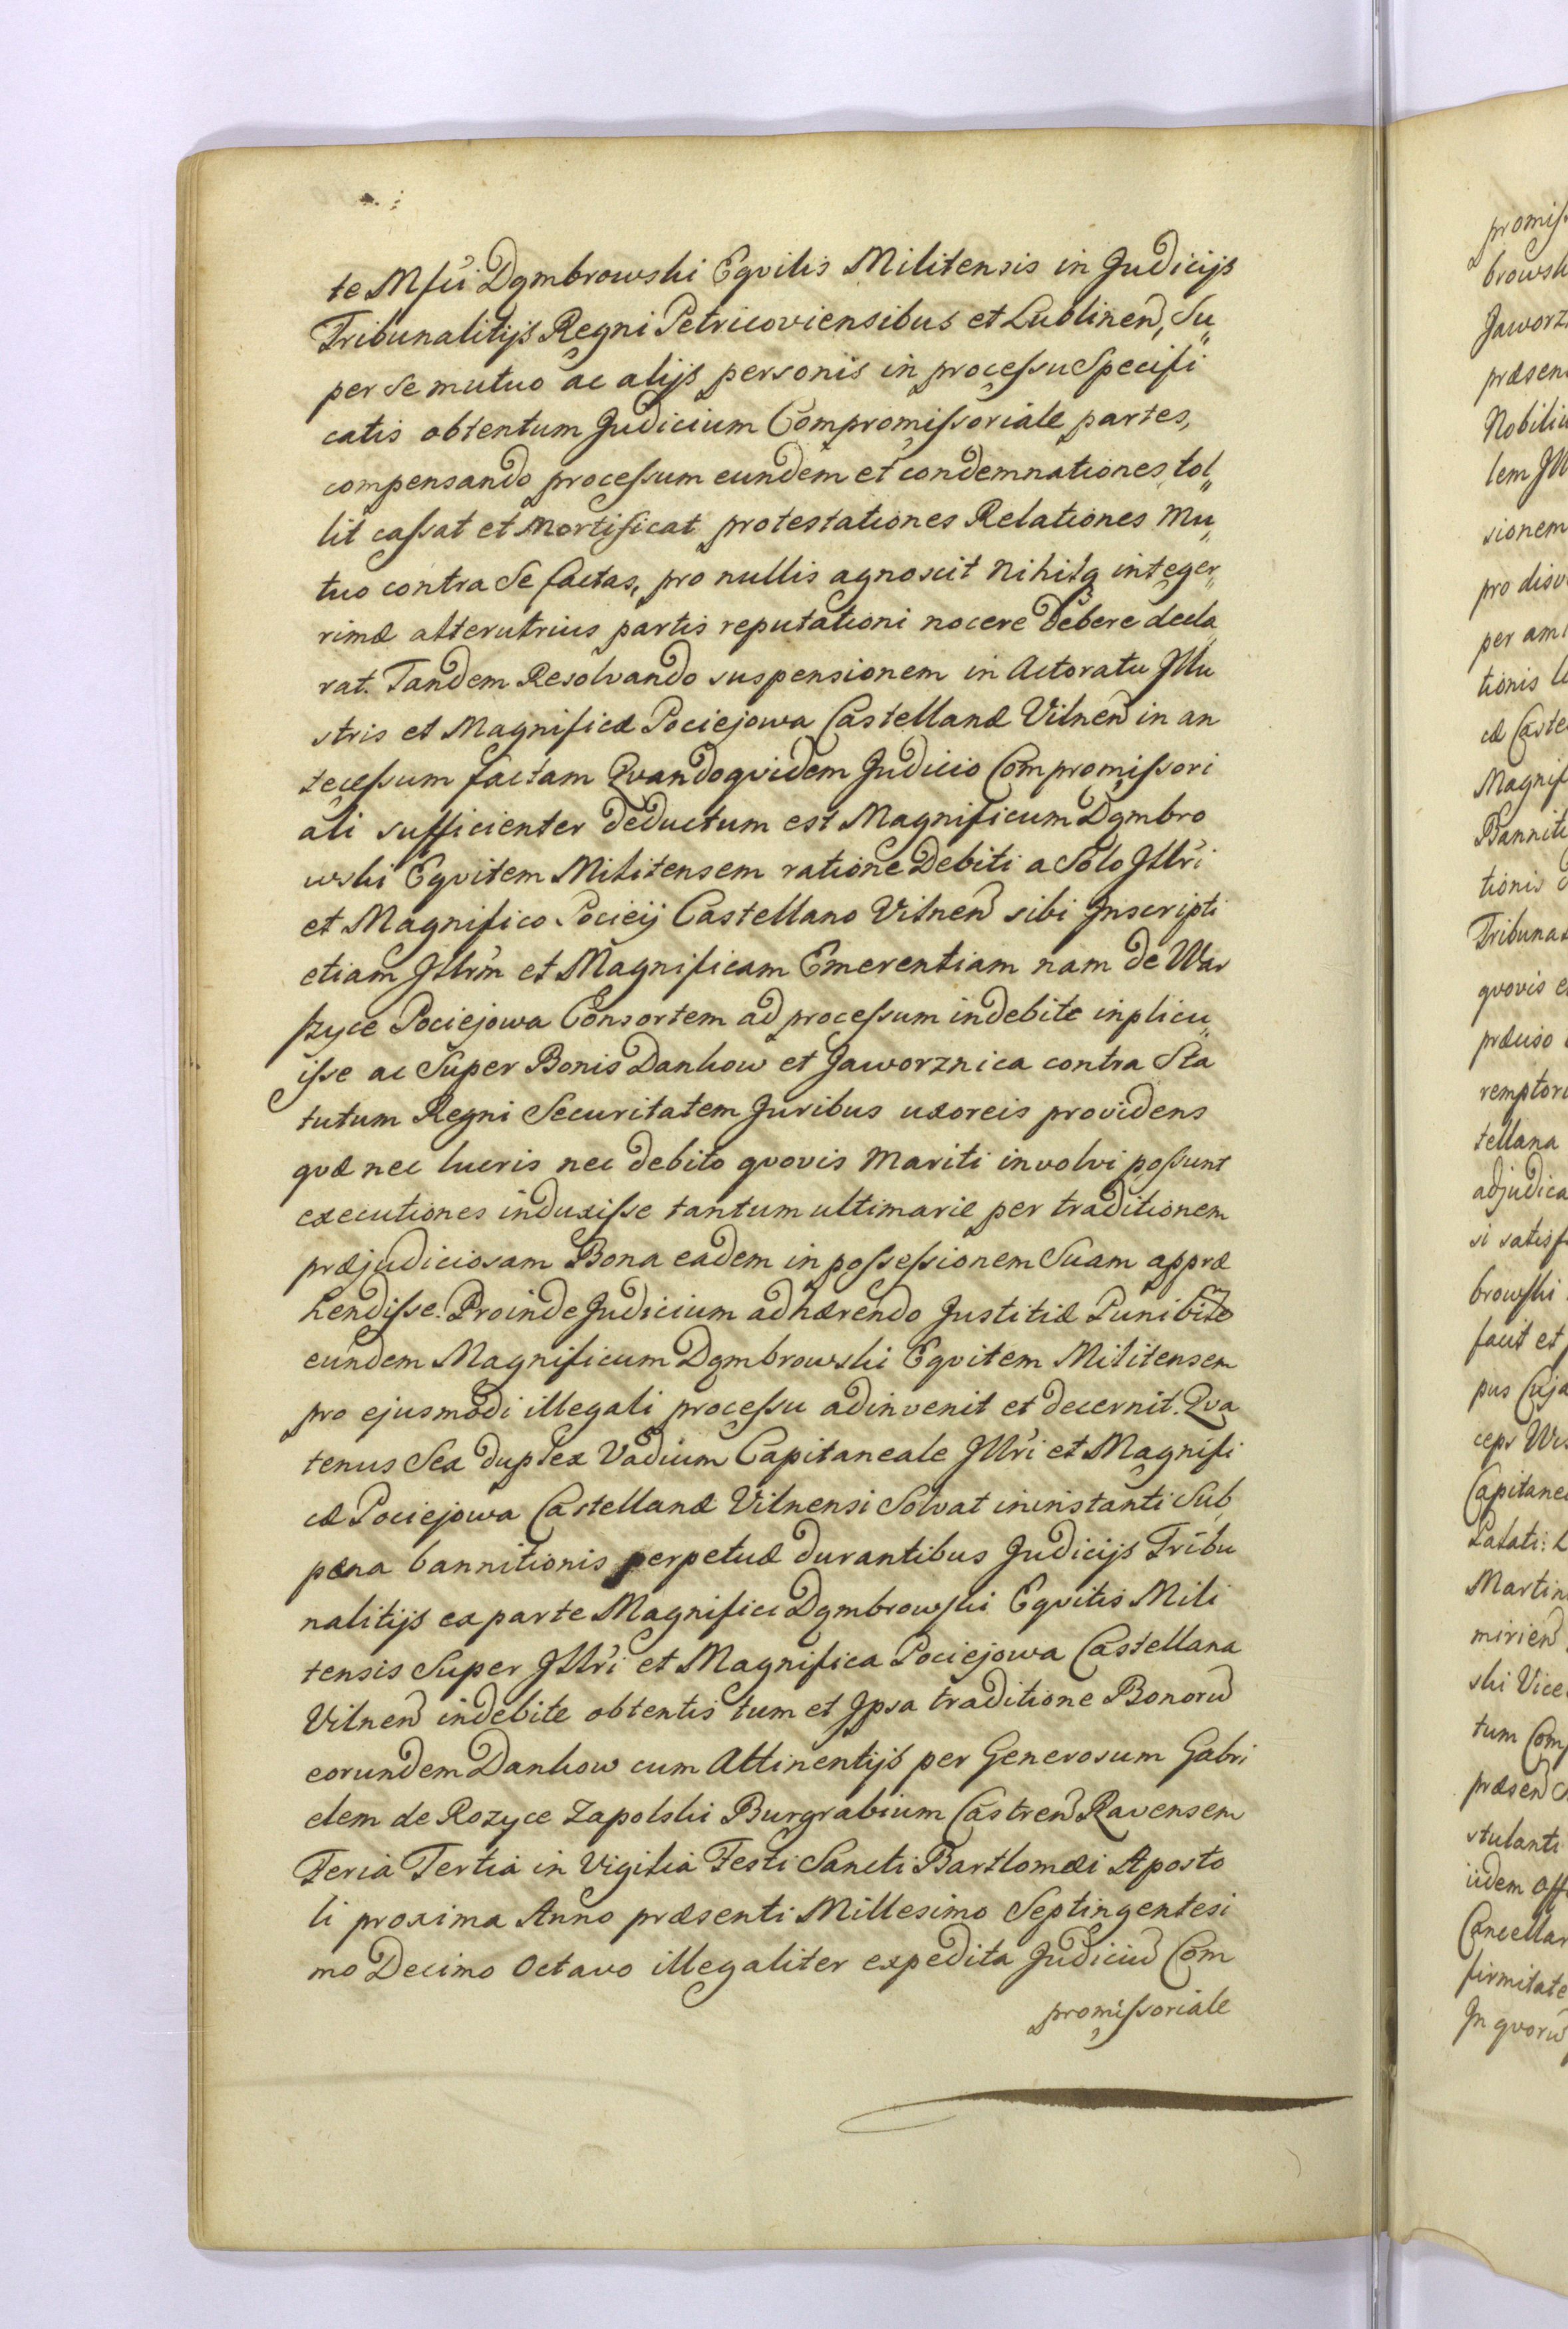 te Mfci Dąmbrowski Eqvitis Militensis in Judicijs
Tribunalitijs Regni Petricoviensibus et Lublinen, Su„
per se mutuo ac alijs personis in processu Specifi
catis obtentum Judicium Compromissoriale partes,
compensando processum eundem et condemnationes, tol„
lit cassat et mortificat protestationes Relationes Mu„
tuo contra se factas, pro nullis agnoscit nihilq integer„
rimæ alterutrius partis reputationi nocere debere decla„
rat. Tandem Resolvando suspensionem in Actoratu Jllu
stris et Magnificæ Pociejowa Castellanæ Vilnen in an
tecessum factam Qvandoqvidem Judicio Compromissori
ali sufficienter deductum est Magnificum Dąmbro
wski Eqvitem Militensem ratione Debiti a Solo Jllri
et Magnifico Pocieij Castellano Vilnen sibi Jnscripti
etiam Jllrm et Magnificam Emerentiam nam de War
szyce Pociejowa Consortem ad processum indebite inplicu„
isse ac Super Bonis Dankow et Jaworznica contra Sta
tutum Regni Securitatem Juribus uxoreis providens
qvæ nec lucris nec debito qvovis mariti involvi possunt
executiones induxisse tantum ultimarie per traditionem
præjudiciosam Bona eadem in possessionem Suam appræ
hendisse. Proinde Judicium adhærendo Justitiæ Punibile
eundem Magnificum Dąmbrowski Eqvitem Militensem
pro ejusmodi illegali processu adinvenit et decernit. Qva
tenus Sex duplex Vadium Capitaneale Jllri et Magnifi
cæ Pociejowa Castellanæ Vilnensi Solvat ininstanti Sub„
pæna bannitionis perpetuæ durantibus Judicijs Tribu
nalitijs ex parte Magnifici Dąmbrowski Eqvitis Mili
tensis Super Jllri et Magnifica Pociejowa Castellana
Vilnen indebite obtentis tum et Jpsa traditione Bonoru
eorundem Dankow cum Attinentijs per Generosum Gabri
elem de Rozyce Zapolski Burgrabium Castren Ravensem
Feria Tertia in Vigilia Festi Sancti Bartlomæi Aposto
li proxima Anno præsenti Millesimo Septingentesi
mo Decimo Octavo illegaliter expedita Judiciu Com
promissoriale
promiss
browsk
Jaworz
præsen
Nobiliu
lem Jll
sionem
pro disv
per am
tionis
cæ Caste
Magnif
Banniti
tionis
Tribuna
qvovis
præciso
remptori
tellana
adjudica
si satisf
browski
facit et
pus Cuja
ceps
Capitane
Palati:
Martin
mirien
ski Vice
tum Com
præsen
stulanti
iidem Off
Cancellar
firmitate
Jn qvoru